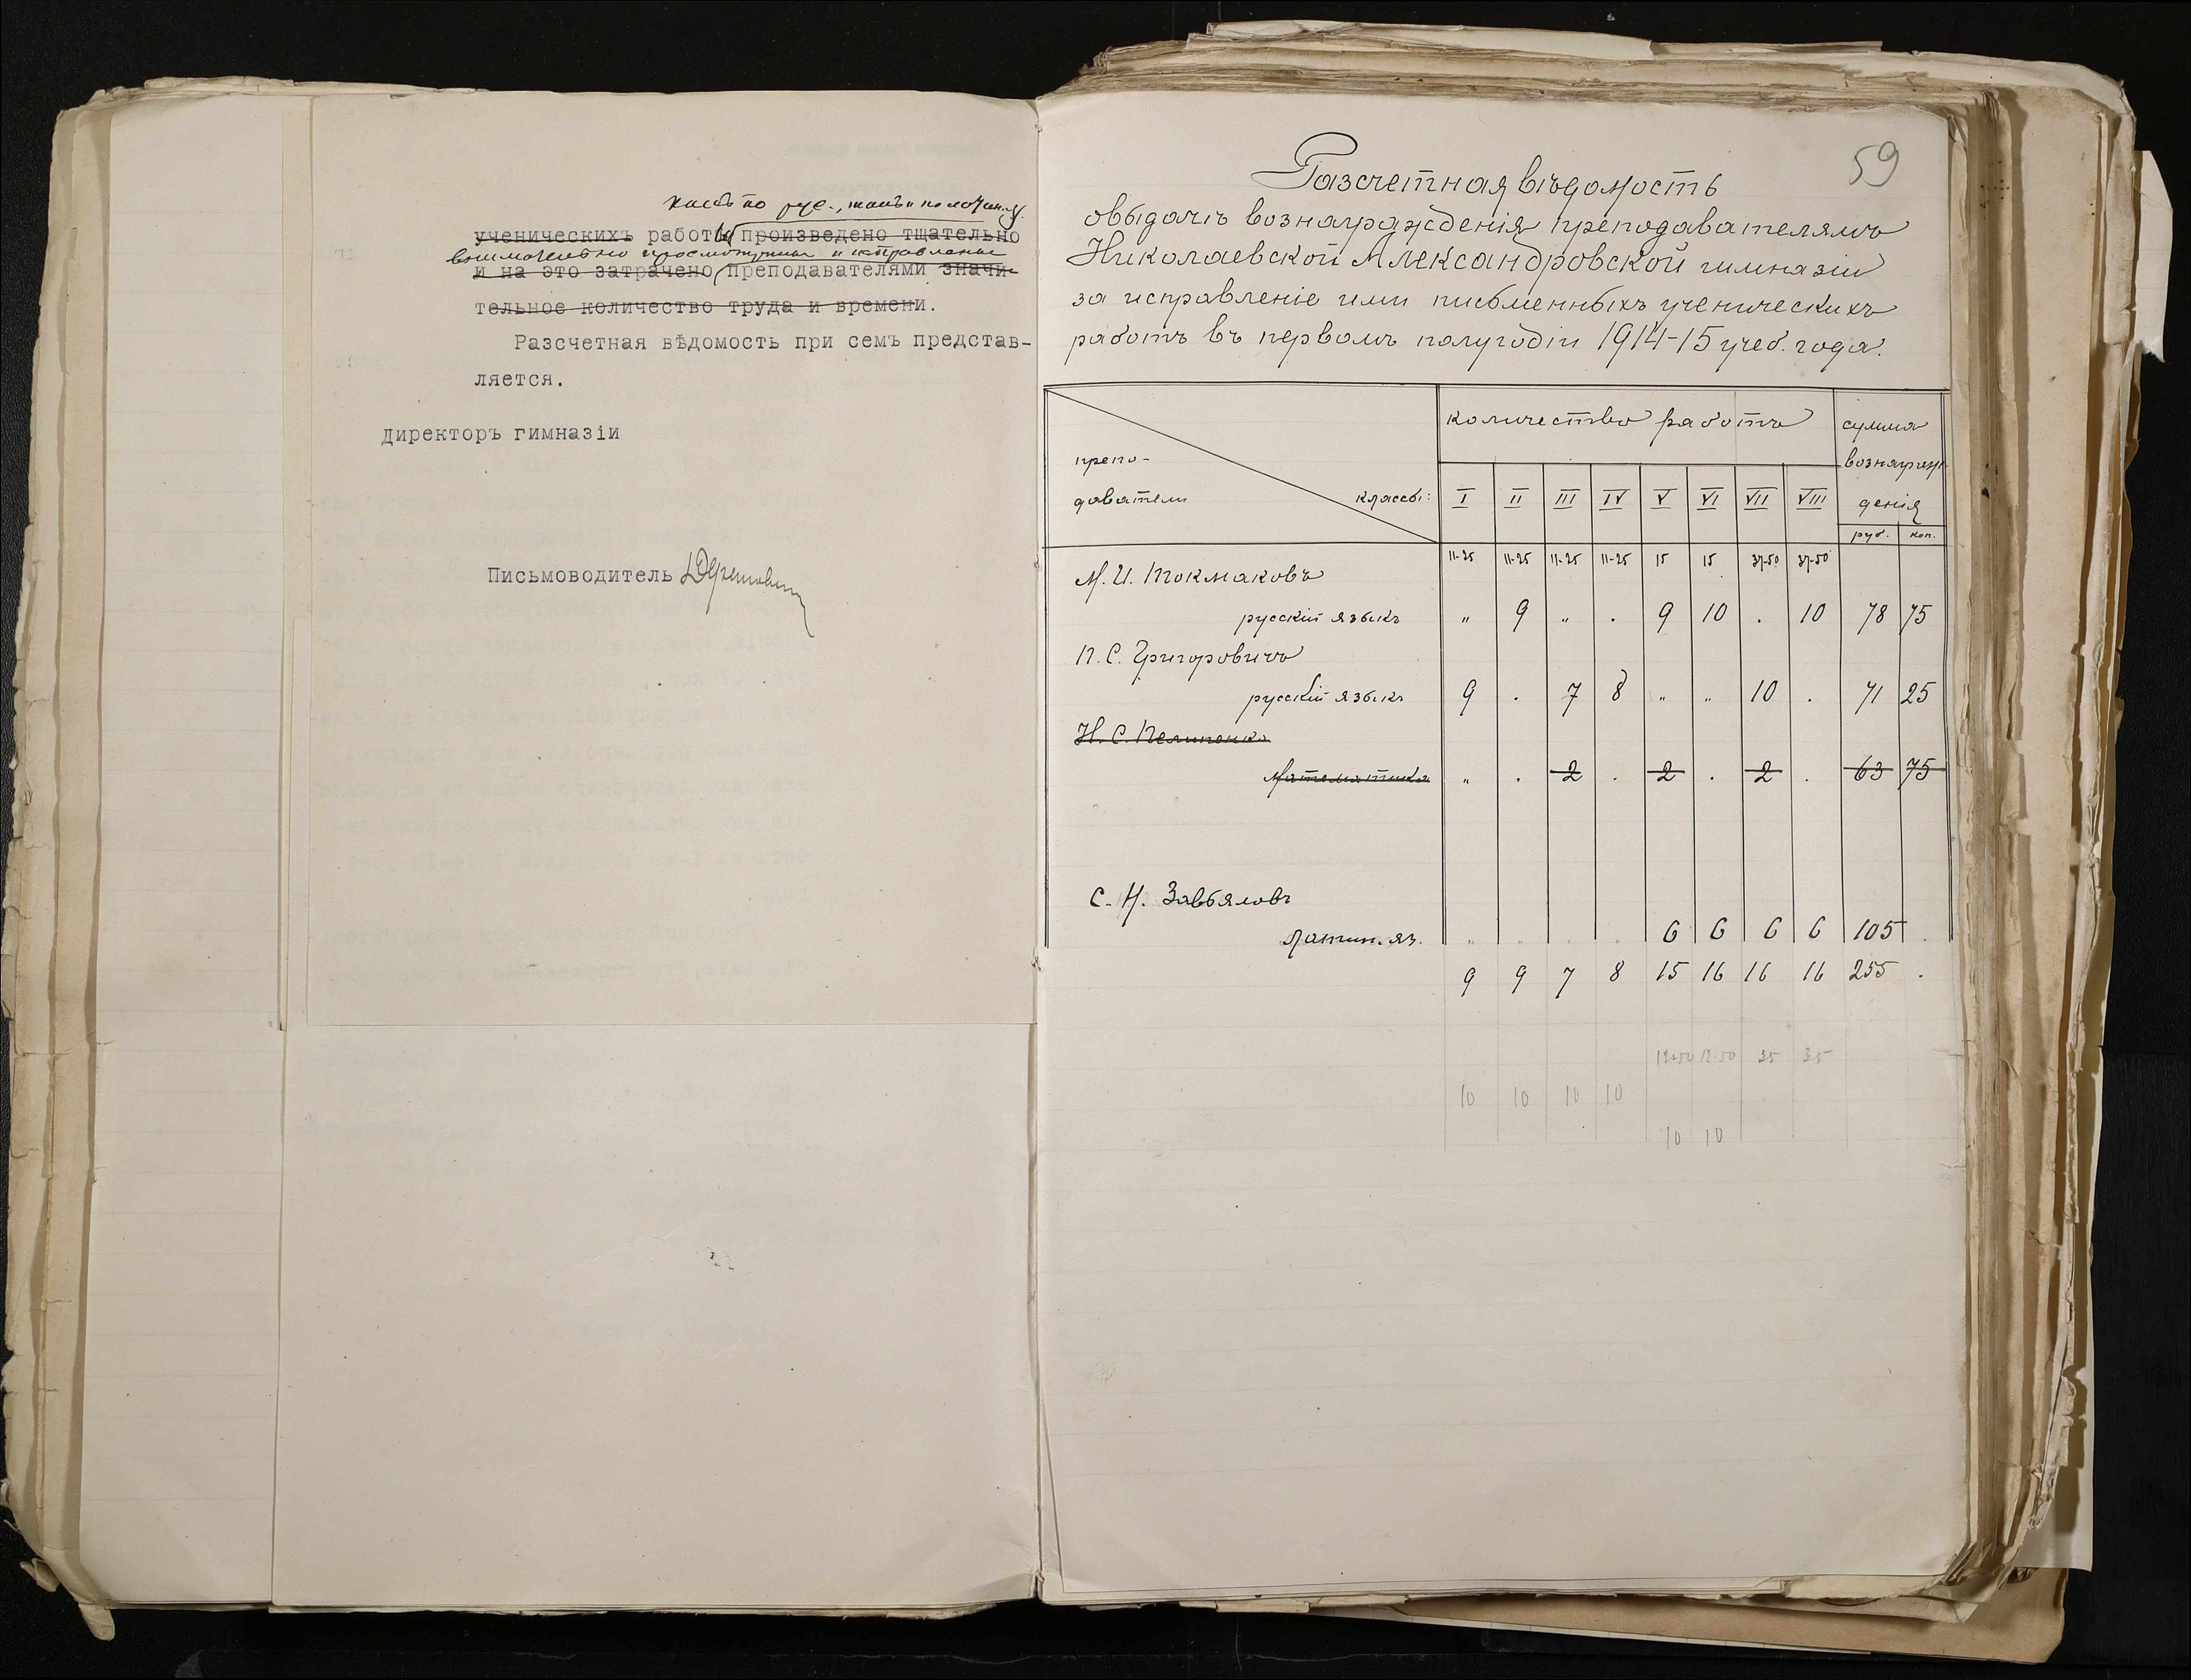 какъ по рус., такъ и по латин. яз.
ученическихъ работы произведено тщательно
внимательно просмотрены и исправлены
и на это затрачено преподавателями значи-
тельное количество труда и времени.
Разсчетная вѣдомость при семъ представ-
ляется.
директоръ гимназіи
Письмоводитель
59
Разсчетная вѣдомость
о выдачѣ вознагражденія преподавателямъ
Николаевской Александровской гимназіи
за исправленіе ими письменныхъ ученическихъ
работъ въ первомъ полугодіи 1914-15 учеб. года.
препо-
даватели классы:
количество работъ
I II III IV V VI VII VIII
сумма
вознаграж-
денія
руб. коп.
11-25 11-25 11-25 11-25 15 15 37-50 37-50
М. И. Токмаковъ
русскій языкъ „ 9 „ . 9 10 . 10 78 75
П. С. Григоровичъ
русскій языкъ 9 . 7 8 „ „ 10 . 71 25
Н. С. Пелипенко
математика „ . 2 . 2 . 2 . 63 75
С. Н. Завьяловъ
латин. яз. „ . . . 6 6 6 6 105 .
9 9 7 8 15 16 16 16 255 .
12-50 12-50 35 35
10 10 10 10
10 10